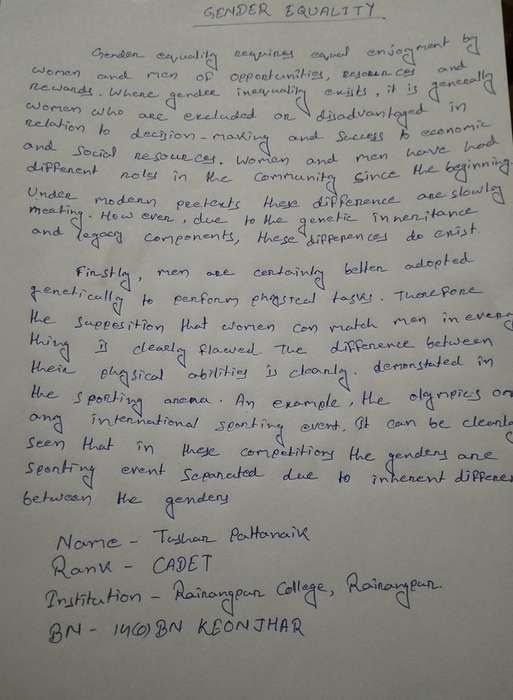 GENDER EQUALITY
Gender equality requires equal enjoyment by
women and men of opportunities, resources and
rewards. Where gender inequality exists, it is generally
women who are excluded or disadvantaged in
relation to decision-making and success to economic
and social resources. Women and men have had
different roles in the community since the beginning.
Under modern pretexts these difference are slowly
meeting. How ever, due to the genetic inheritance
and legacy components, these differences do exist.
Firstly, men are certainly better adopted
genetically to perform physical tasks. Therefore
the supposition that women can match men in every
thing is clearly flawed The difference between
their physical abilities is clearly. demonstated in
the sporting arena. An example, the olympics or
any international sporting event. It can be clearly
seen that in these competitions the genders are
sporting event separated due to inherent differen
between the genders
Name - Tushar Pattanaik
Rank - CADET
Institution - Rairangpur College, Rairangpur.
BN - 14(O) BN KEONJHAR